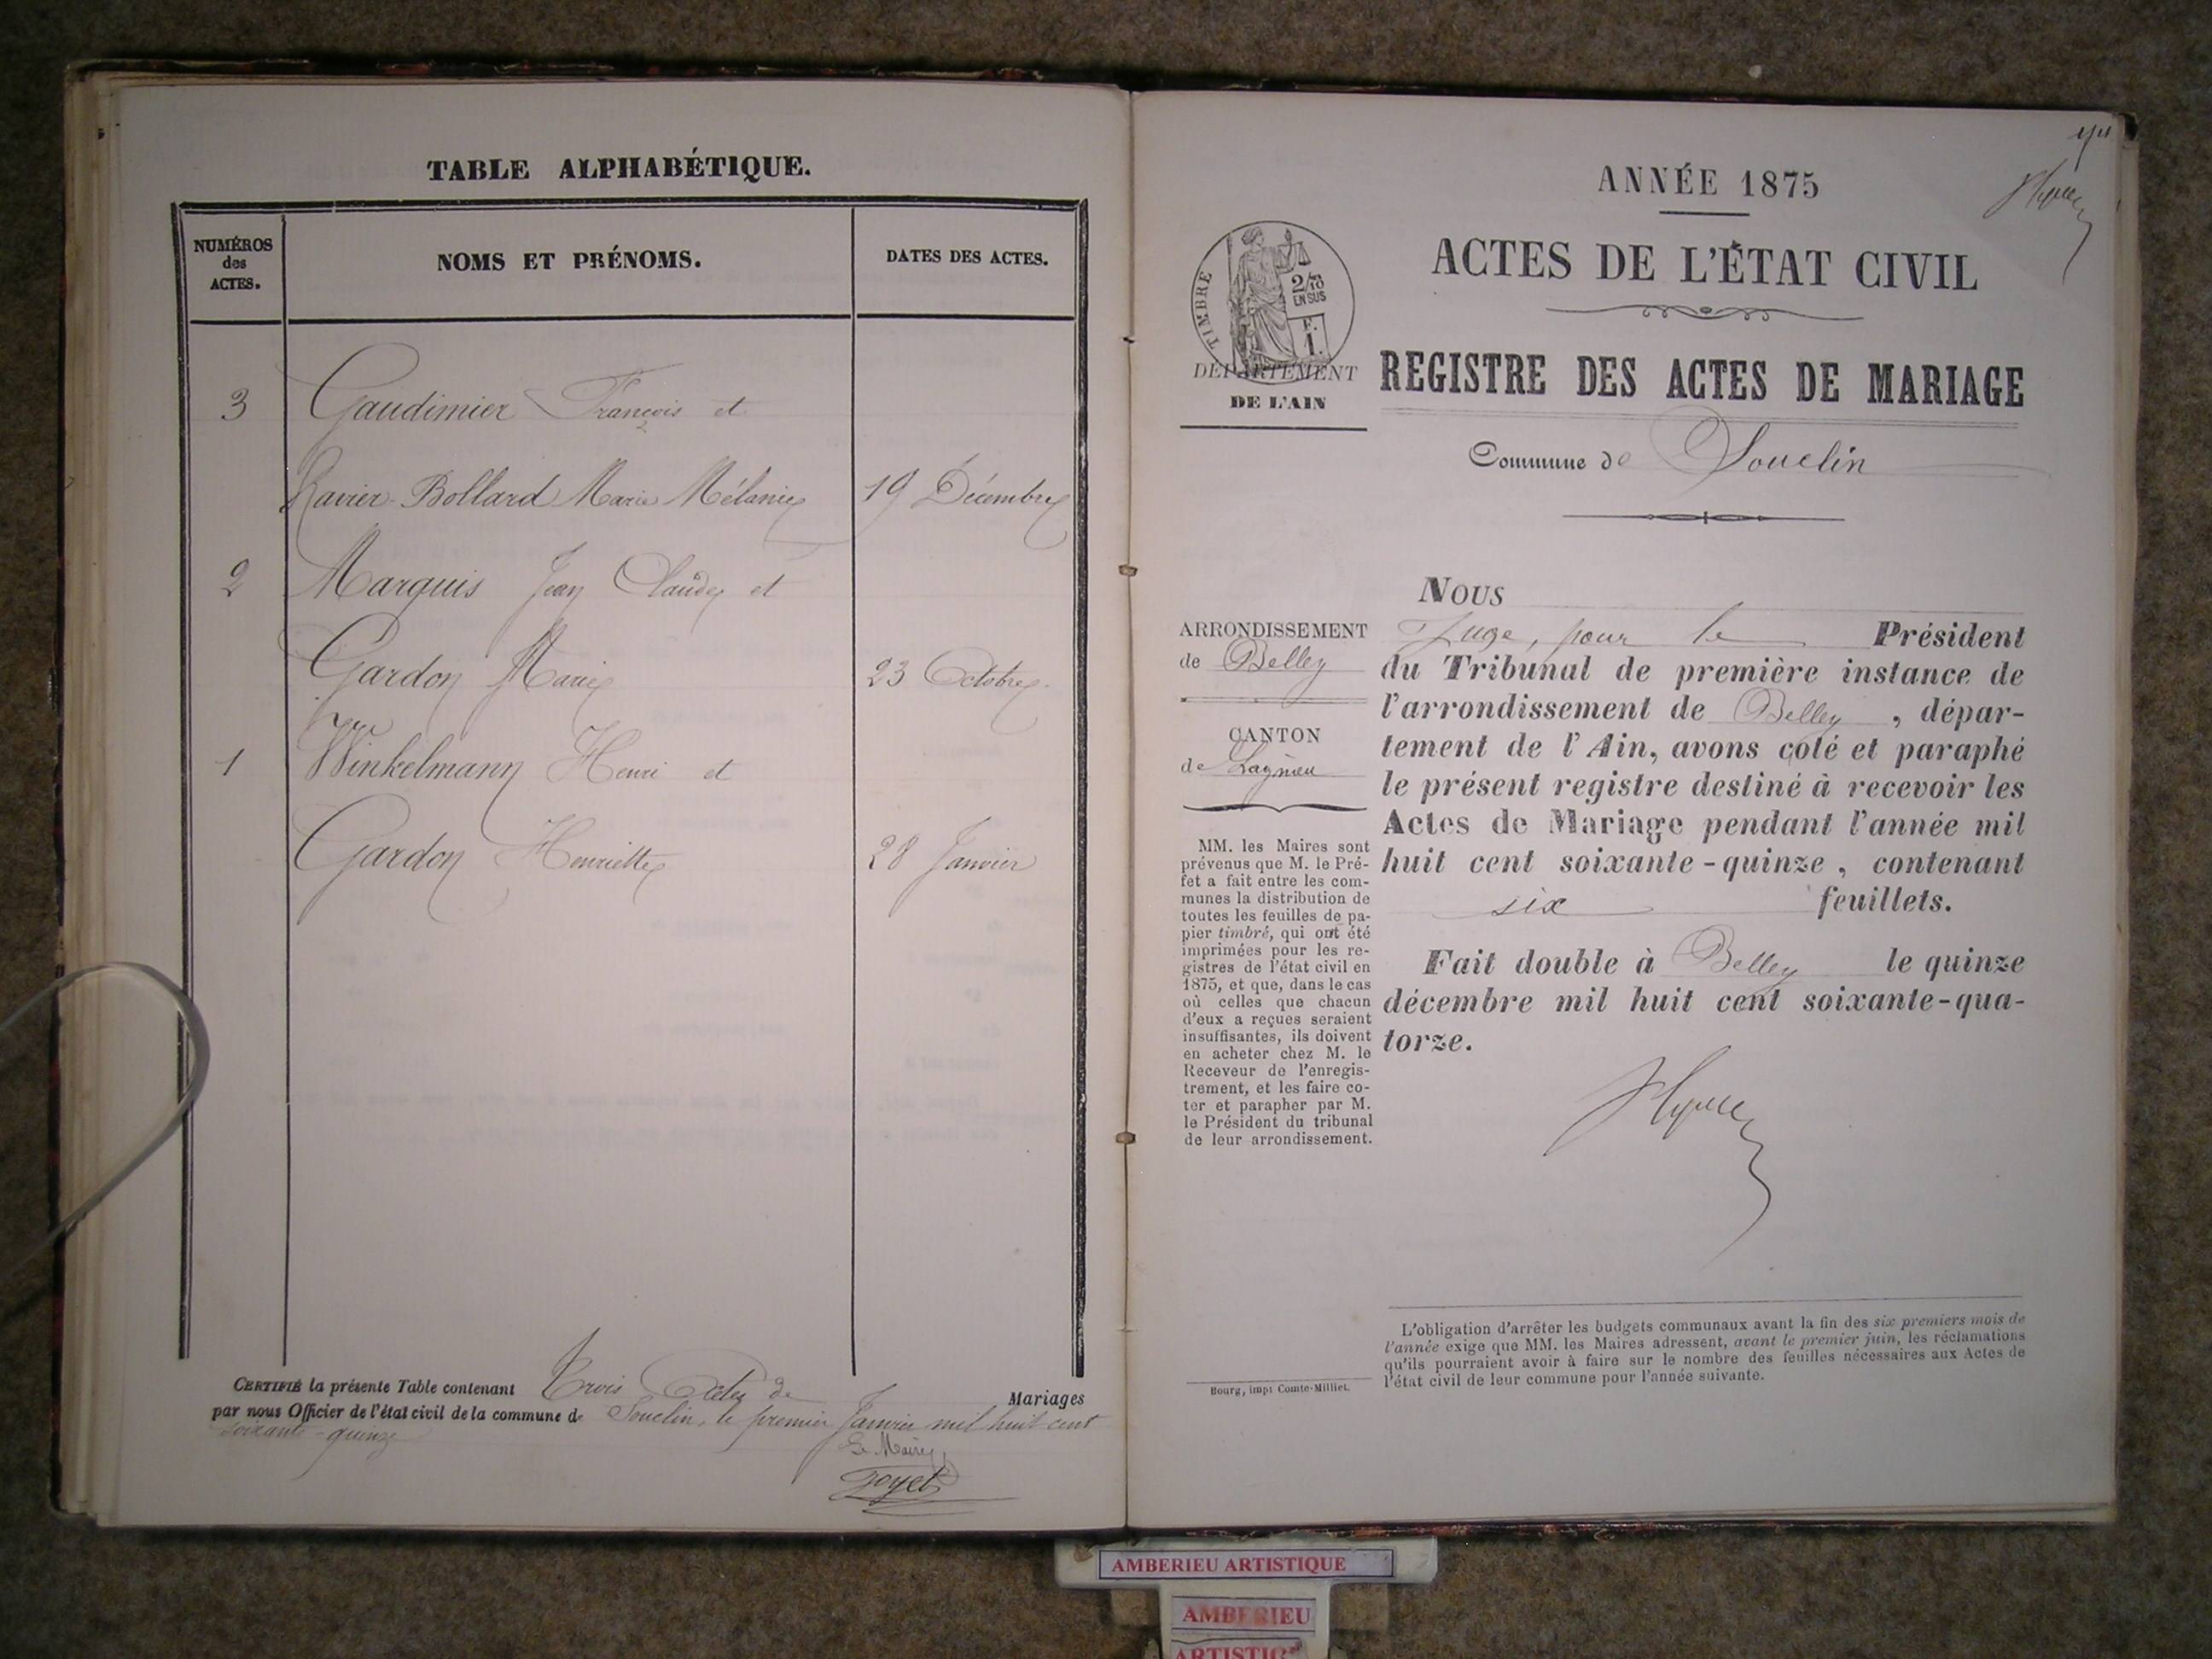 TABLE ALPHABÉTIQUE.
NUMÉROS
des
ACTES.
NOMS ET PRÉNOMS.
DATES DES ACTES.
3 Gaudimier François et
Ravier-Bollard Marie Mélanie 19 Décembre
2 Marquis Jean Claude et
Gardon Marie 23 Octobre
1 Winkelmann Henri et
Gardon Henriette 28 Janvier
CERTIFIÉ la présente Table contenant Trois Actes de Mariages
par nous Officier de l'état civil de la commune de Souclin, le premier Janvier mil huit cent
soixante-quinze
Le Maire
ANNÉE 1875
ACTES DE L'ÉTAT CIVIL
TIMBRE
2/10
EN SUS
F.
1.
DÉPARTEMENT
DE L'AIN
REGISTRE DES ACTES DE MARIAGE
Commune de Souclin
ARRONDISSEMENT
de Belley
CANTON
de Lagnieu
MM. les Maires sont
prévenus que M. le Pré-
fet a fait entre les com-
munes la distribution de
toutes les feuilles de pa-
pier timbré, qui ont été
imprimées pour les re-
gistres de l'état civil en
1875, et que, dans le cas
où celles que chacun
d'eux a reçues seraient
insuffisantes, ils doivent
en acheter chez M. le
Receveur de l'enregis-
trement, et les faire co-
ter et parapher par M.
le Président du tribunal
de leur arrondissement.
NOUS
Juge, pour le Président
du Tribunal de première instance de
l'arrondissement de Belley, dépar-
tement de l'Ain, avons coté et paraphé
le présent registre destiné à recevoir les
Actes de Mariage pendant l'année mil
huit cent soixante-quinze, contenant
six feuillets.
Fait double à Belley le quinze
décembre mil huit cent soixante-qua-
torze.
L'obligation d'arrêter les budgets communaux avant la fin des six premiers mois de
l'année exige que MM. les Maires adressent, avant le premier juin, les réclamations
qu'ils pourraient avoir à faire sur le nombre des feuilles nécessaires aux Actes de
l'état civil de leur commune pour l'année suivante.
Bourg, imp. Comte-Milliet.
AMBERIEU ARTISTIQUE
AMBERIEU
ARTISTIQ